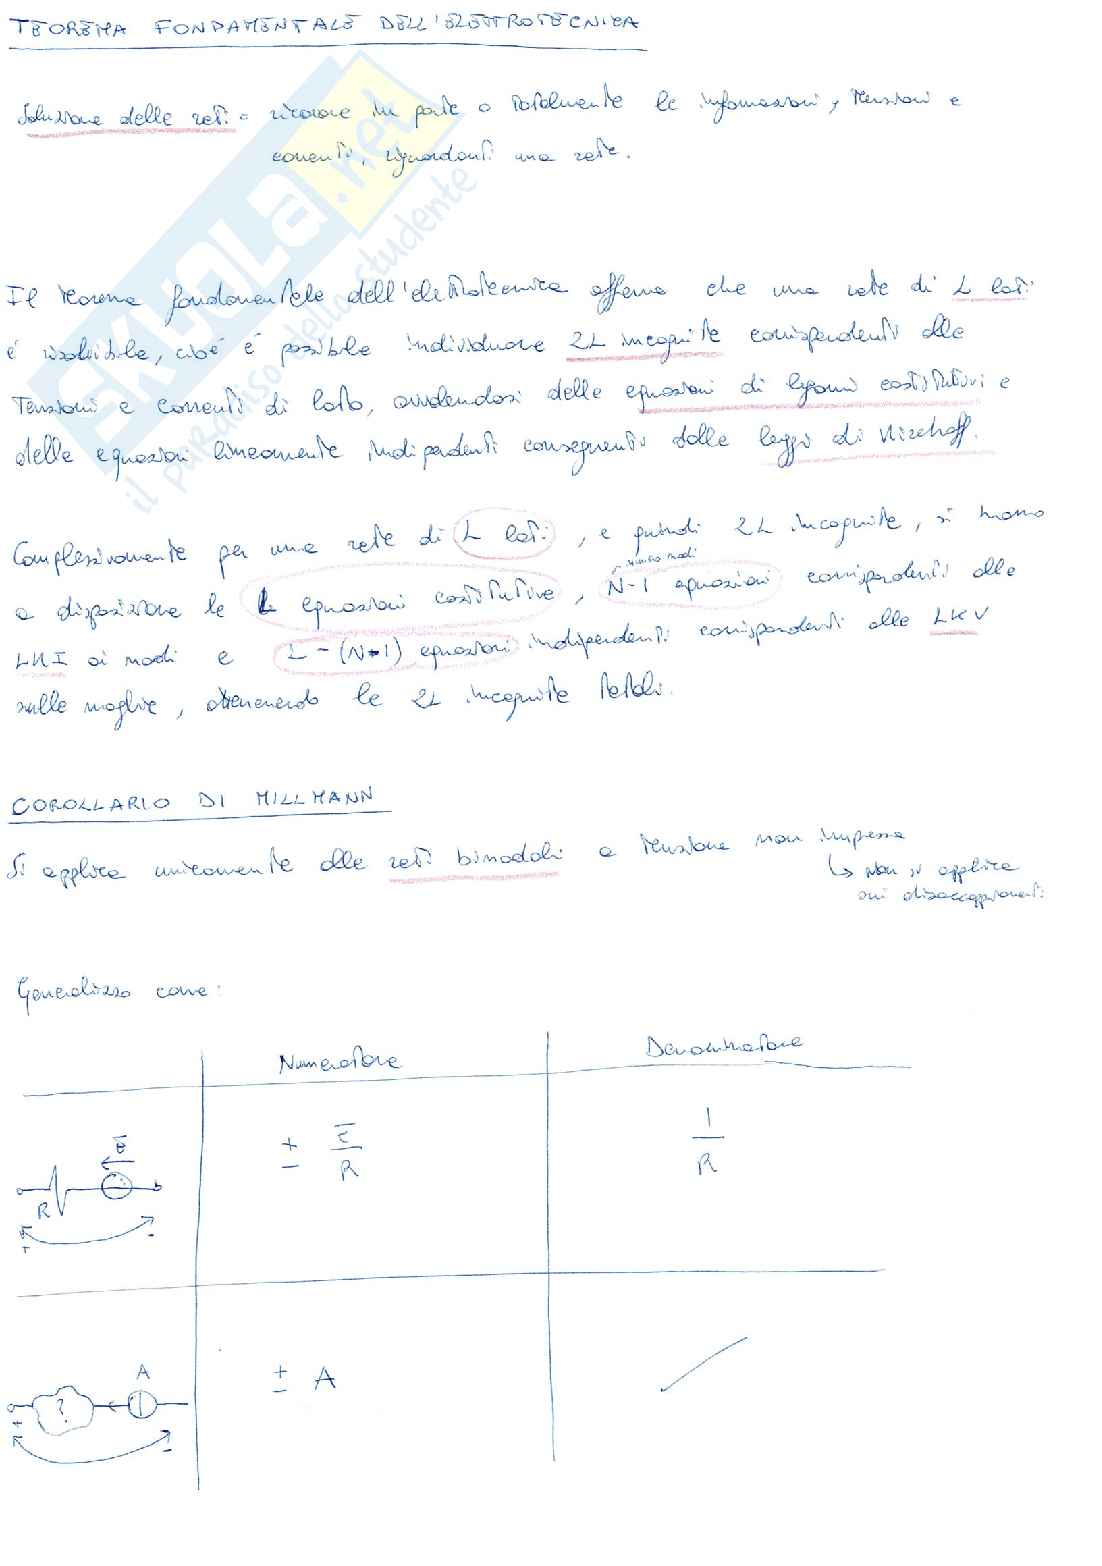 TEOREMA FONDAMENTALE DELL'ELETTROTECNICA
Soluzione delle reti = ricavare in parte o totalmente le informazioni, tensioni e
correnti, riguardanti una rete.
Il teorema fondamentale dell'elettrotecnica afferma che una rete di L lati
é risolvibile, cioé é possibile individuare 2L incognite corrispondenti alle
tensioni e correnti di lato, avvalendosi delle equazioni di legami costitutivi e
delle equazioni linearmente indipendenti conseguenti dalle leggi di Kirchoff.
Complessivamente per una rete di L lati, e quindi 2L incognite, si hanno
numero nodi
a disposizione le L equazioni costitutive, N-1 equazioni corrispondenti alle
LKI ai nodi e L-(N-1) equazioni indipendenti corrispondenti alle LKV
sulle maglie, ottenendo le 2L incognite totali.
COROLLARIO DI MILLMANN
Si applica unicamente alle reti binodali a tensione non impressa
↳ Non si applica
sui disaccoppiamenti
Generalizzo come:
Numeratore Denominatore
E
R
+ -
± E/R
1/R
A
?
+ -
± A
SKUOLA.net
il paradiso dello studente